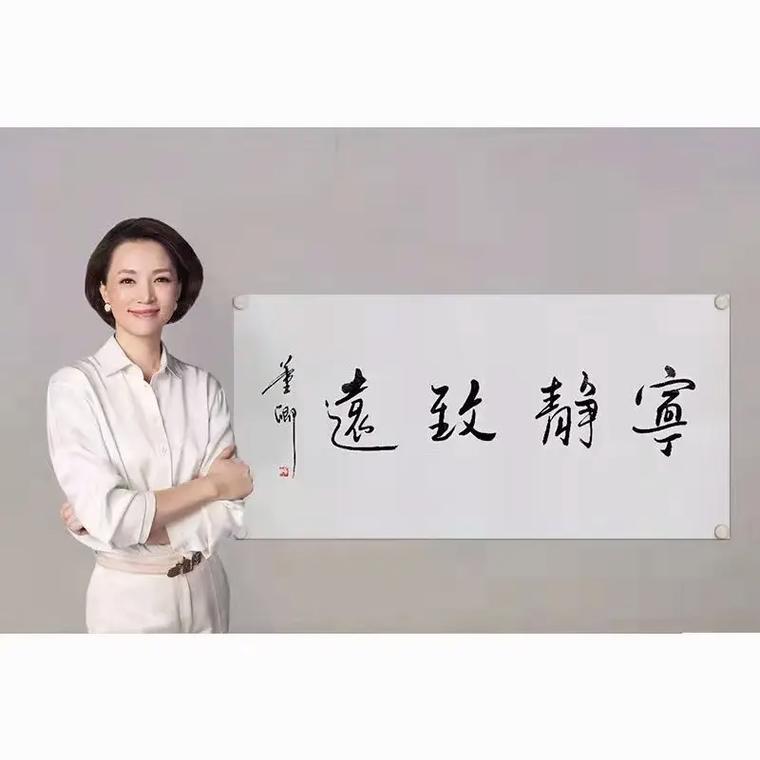 寧静致遠
董卿